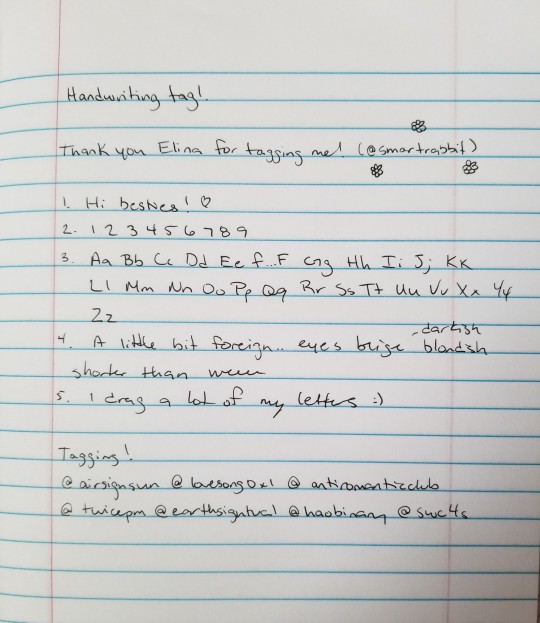 Handwriting tag!
Thank you Elina for tagging me! (@smartrabbit)
1. Hi besties! ♡
2. 1 2 3 4 5 6 7 8 9
3. Aa Bb Cc Dd Ee f...F Gg Hh Ii Jj Kk
Ll Mm Nn Oo Pp Qq Rr Ss Tt Uu Vv Xx Yy
Zz
darkish
4. A little bit foreign.. eyes beige blondish
shorter than
5. I drag a lot of my letters :)
Tagging!
@airsignsun @lovesong0x1 @antiromanticclub
@twicepm @haobinany @swc4s